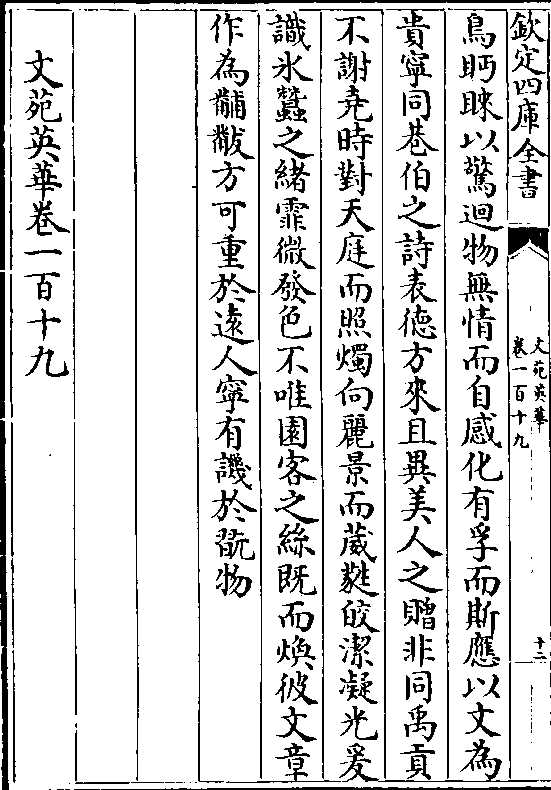 欽定四庫全書
文苑英華
卷一百十九
十二
鳥眄睞以驚迴物無情而自感化有孚而斯應以文為
貴寧同巷伯之詩表德方來且異美人之贈非同禹貢
不謝堯時對天庭而照燭向麗景而葳蕤皎潔凝光爰
識氷蠶之緒霏微發色不唯園客之絲既而煥彼文章
作為黼黻方可重於遠人寧有譏於翫物
文苑英華卷一百十九